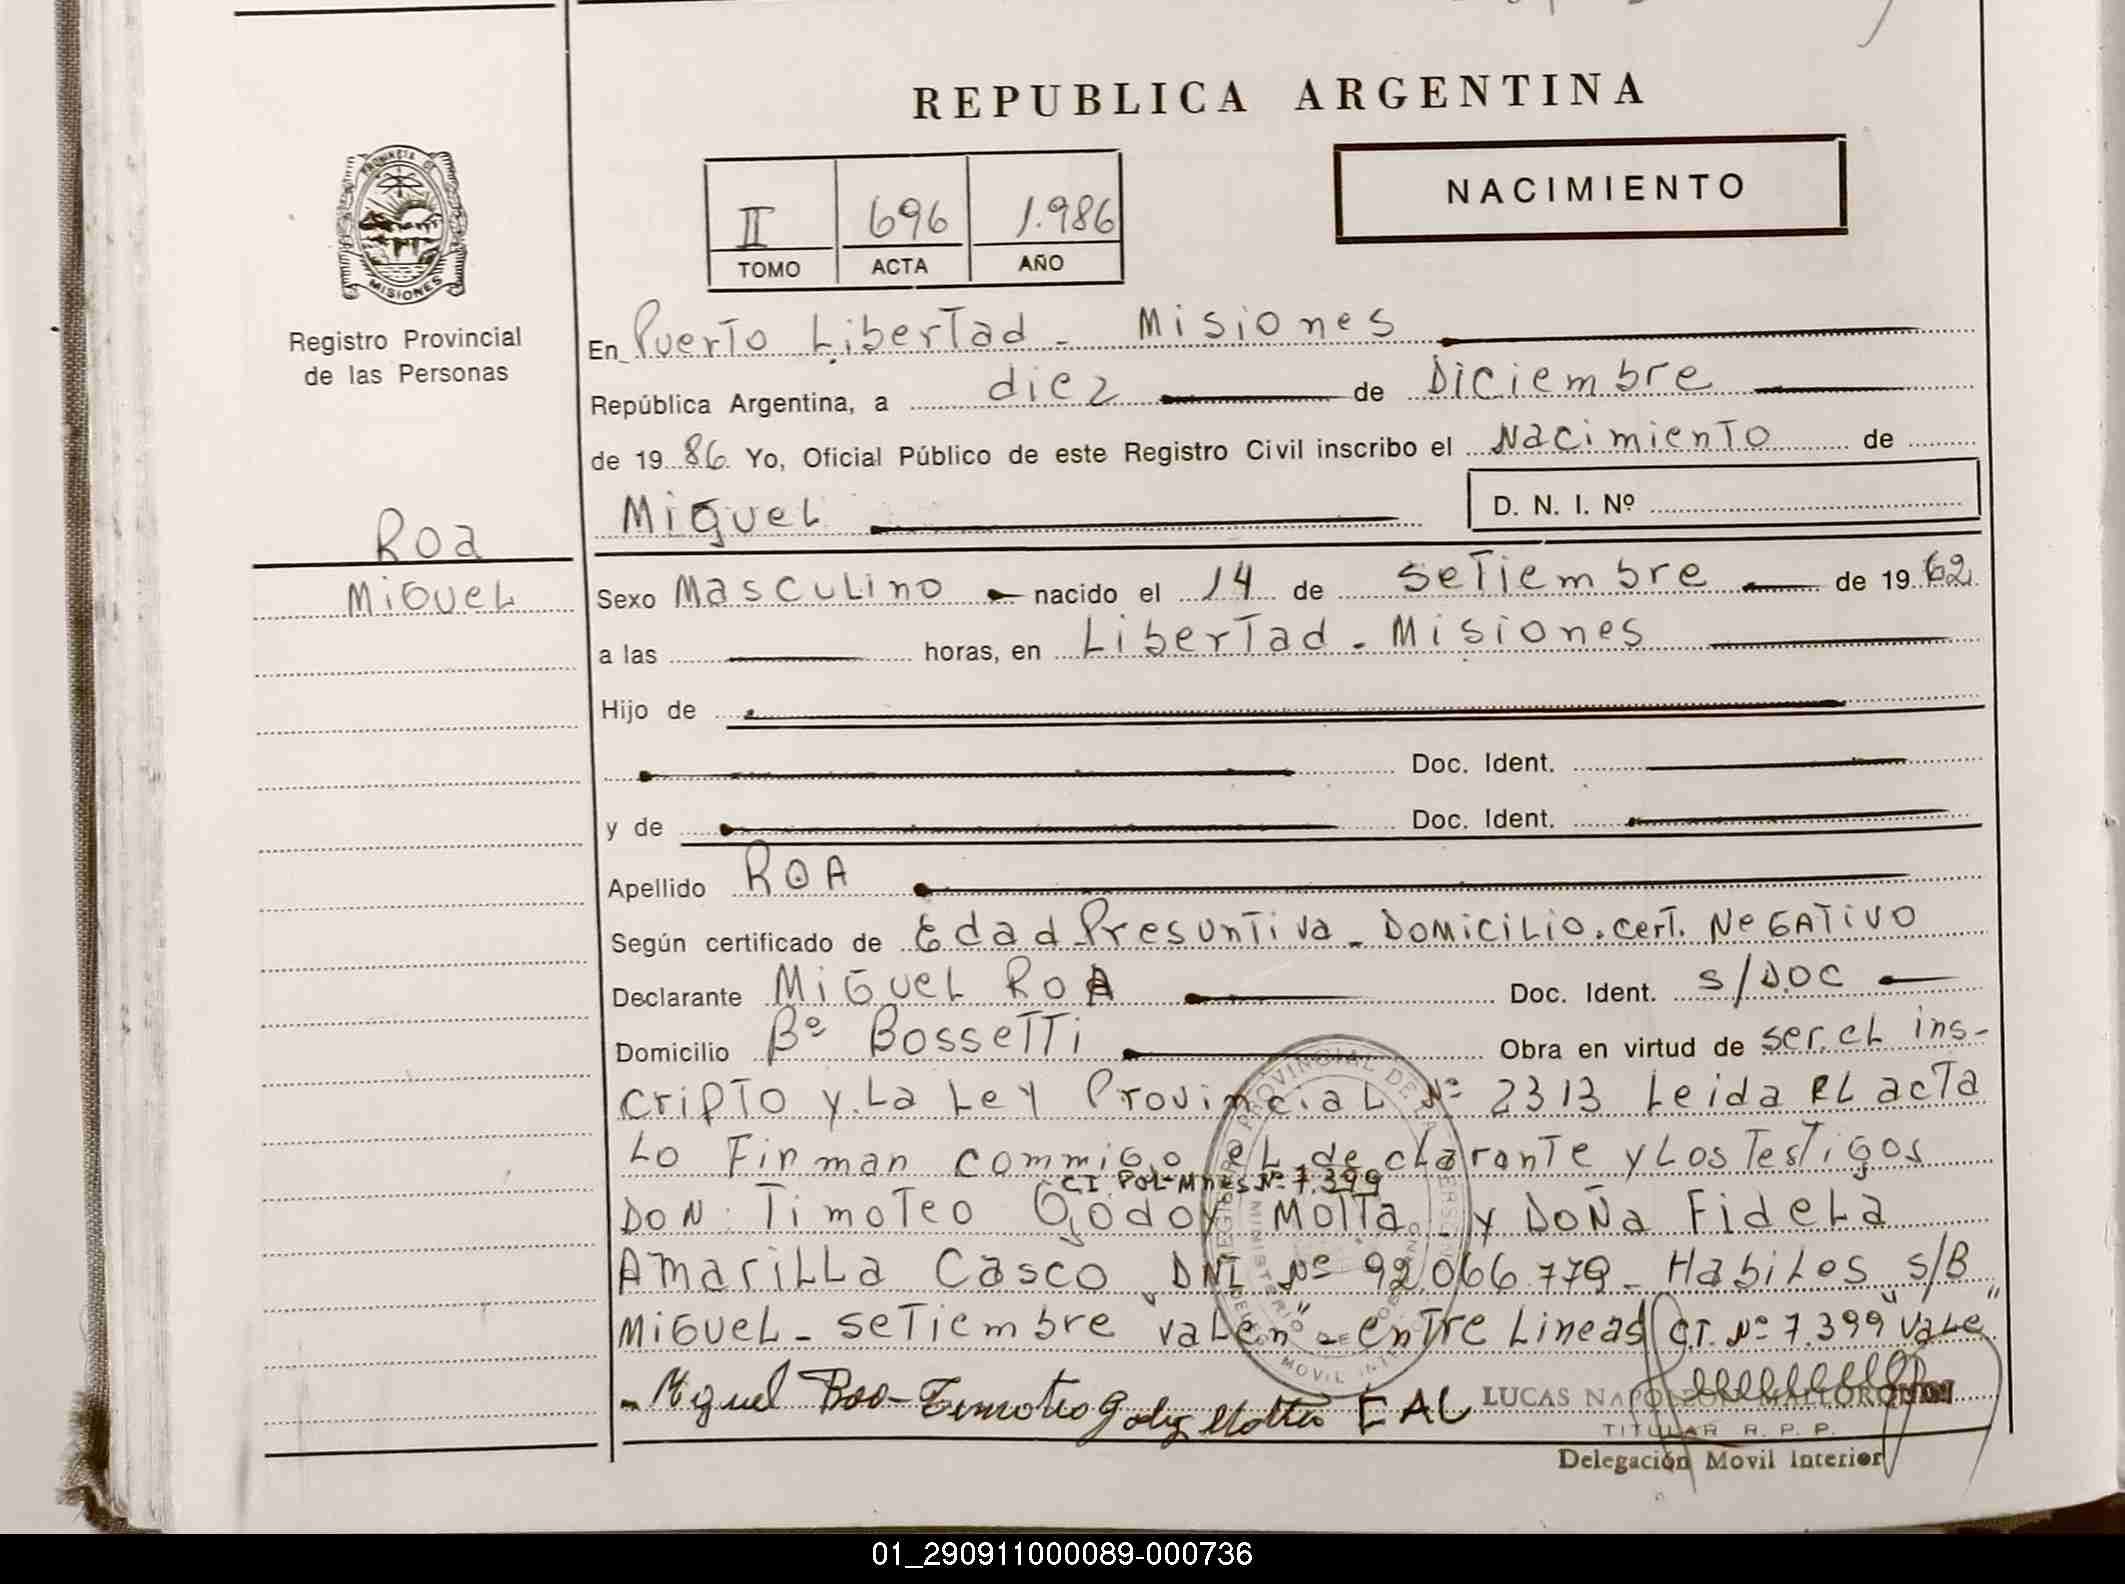 REPUBLICA ARGENTINA
NACIMIENTO
II 696 1.986
TOMO ACTA AÑO
PROVINCIA DE
MISIONES
Registro Provincial
de las Personas
Roa
Miguel
En Puerto Libertad - Misiones
República Argentina, a diez de Diciembre
de 19 86 Yo, Oficial Público de este Registro Civil inscribo el Nacimiento de
Miguel D. N. I. Nº
Sexo Masculino nacido el 14 de Setiembre de 19 62
a las horas, en Libertad - Misiones
Hijo de
Doc. Ident.
y de Doc. Ident.
Apellido ROA
Según certificado de Edad Presuntiva - Domicilio. cert. Negativo
Declarante Miguel Roa Doc. Ident. S/DOC
Domicilio Bº Bossetti Obra en virtud de ser el ins-
cripto y La Ley Provincial Nº 2313 Leida EL acta
Lo Firman commigo el declarante y Los Testigos
C.I. Pol-Mnes Nº 7.399
DON: Timoteo Godoy Motta y DOÑA Fidela
Amarilla Casco DNI Nº 92.066.779 - Habiles S/B
Miguel - Setiembre "valen" - Entre Lineas C.I. Nº 7.399 "vale"
- Miguel Roa - Timoteo Godoy Motta EAC
LUCAS NAPOLEON
TITULAR R. P. P.
Delegación Movil Interior
01_290911000089-000736